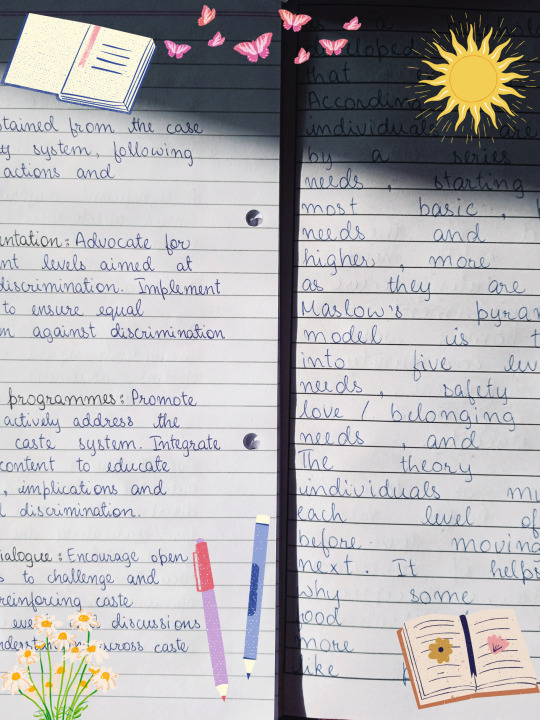 tained from the case
system, following
actions and
entation: Advocate for
nt levels aimed at
discrimination. Implement
to ensure equal
m against discrimination
programmes: Promote
actively address the
caste system. Integrate
content to educate
, implications and
discrimination.
ialogue: Encourage open
s to challenge and
reinforcing caste
discussions
across caste
that
According
individuals are
by a series
needs, starting
most basic,
needs and
higher, more
as they are
Maslow's pyram
model is t
into five lev
needs, safety
love / belonging
needs, and
The theory
individuals mu
each level of
before moving
next. It helps
why some
ood
more
like